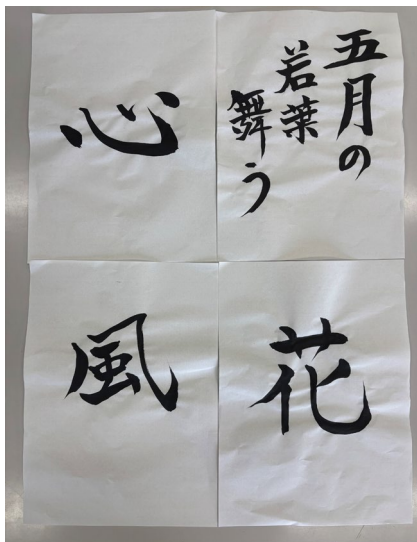 五月の
若葉
舞う
心
花
風